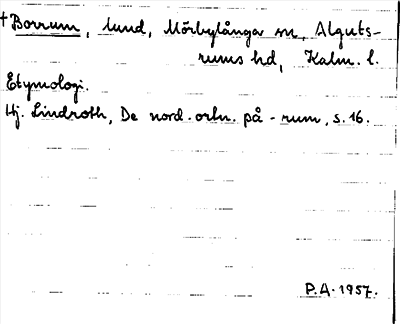 †Borrum, lund, Mörbylånga sn, Alguts-
rums hd, Kalm. l.
Etymologi.
Hj. Lindroth, De nord. ortn. på -rum, s. 16.
P.A. 1957.